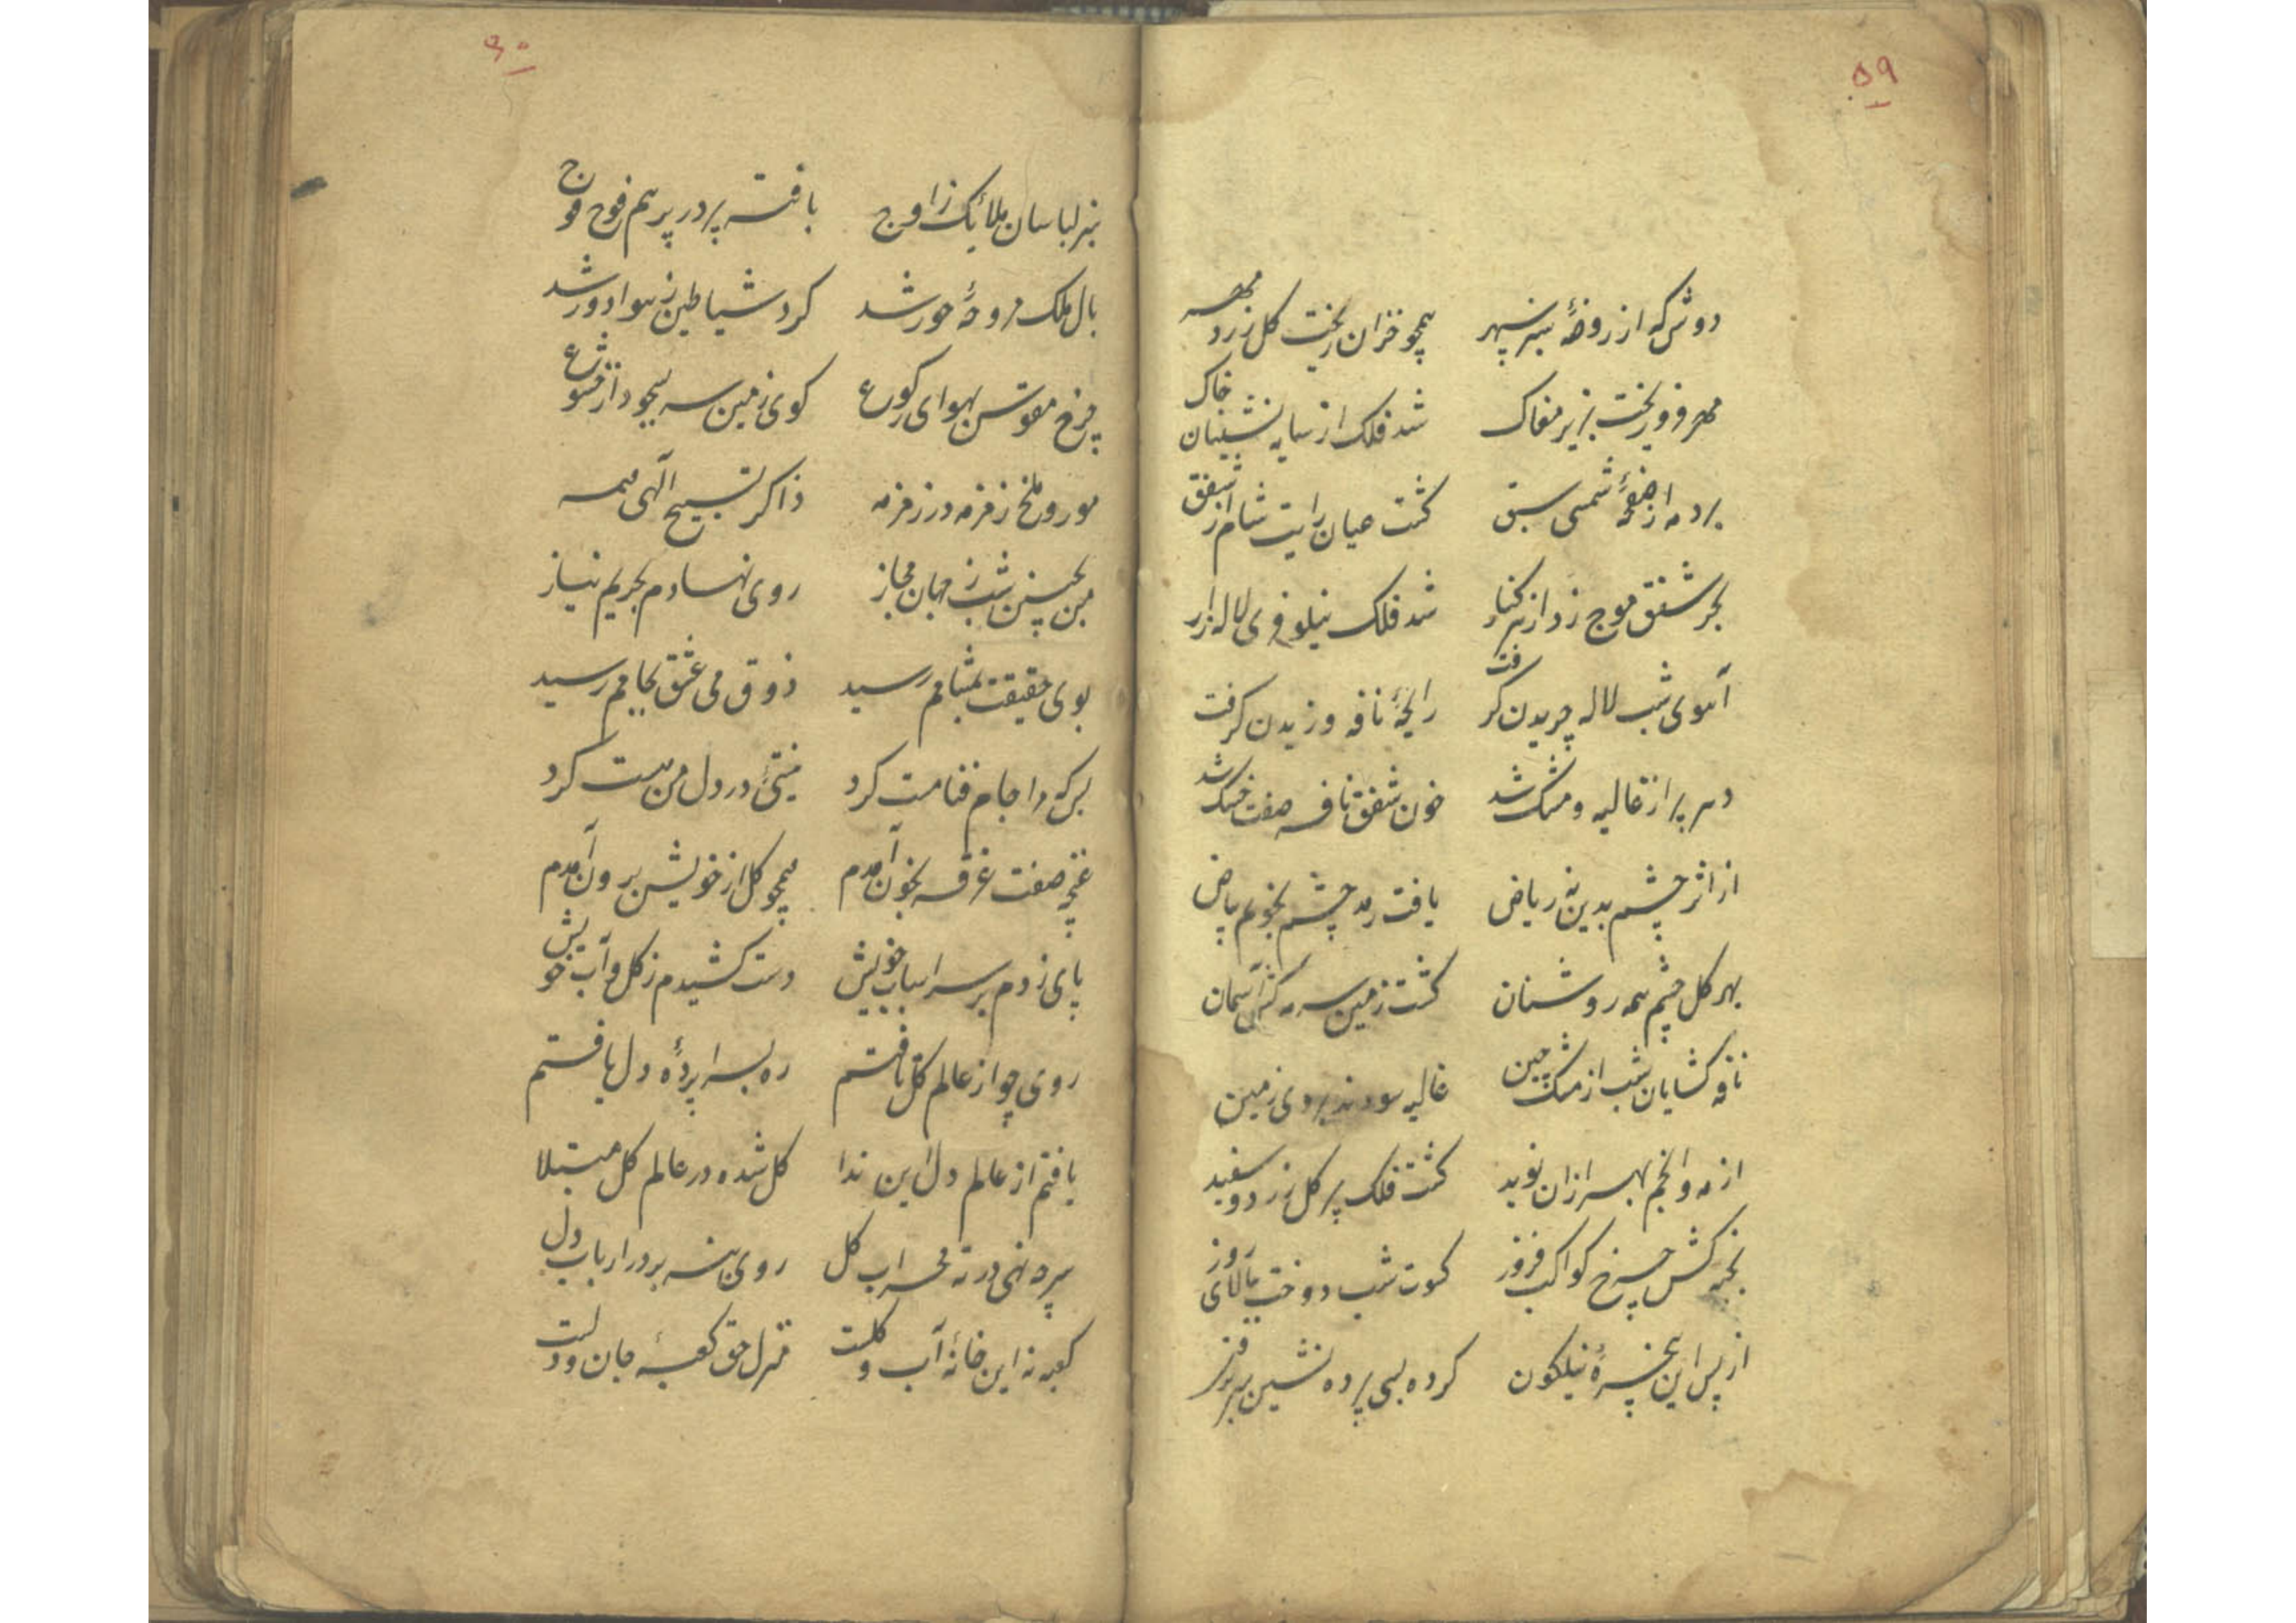 ۵۹
دوش که از روضهٔ سبز سپهر همچو خزان ریخت گل زرد مهر
مهر فرو ریخت بزیر مغاک شد فلک از سایه نشینان خاک
برد مه از صفحهٔ شمسی سبق گشت عیان رایت شام از شفق
بحر شفق موج زد از هر کنار شد فلک نیلوفری لاله زار
آهوی شب لاله چریدن گرفت رایحهٔ نافه وزیدن گرفت
دهر پر از غالیه و مشک شد خون شفق نافه صفت خشک شد
از اثر چشم بدین نه ریاض یافت رمد چشم نجوم بیاض
بهر کل چشم همه روشنان گشت زمین سرمه کش آسمان
نافه کشایان شب از مشک چین غالیه سودند بروی زمین
از مه و انجم بهزاران نوید گشت فلک پر گل زرد و سفید
بخیه کش چرخ کواکب فروز کسوت شب دوخت ببالای روز
از پس این پنجرهٔ نیلگون کرده بسی پرده نشین سر برون
۶۰
سبز لباسان ملائک ز اوج بافته پر در پر هم فوج فوج
بال ملک مروحهٔ حور شد کرد شیاطین ز هوا دور شد
چرخ مقوس بهوای رکوع کوی زمین سر بسجود از خشوع
مور و ملخ زمزمه در زمزمه ذاکر تسبیح الهی همه
من بچنین شب ز جهان مجاز روی نهادم بحریم نیاز
بوی حقیقت بمشامم رسید ذوق می عشق بجامم رسید
بس که مرا جام فنا مست کرد نیستیٔ در دل من هست کرد
غنچه صفت غرقه بخون آمدم همچو گل از خویش برون آمدم
پای زدم بر سر اسباب خویش دست کشیدم ز گل و آب خویش
روی چو از عالم گل تافتم ره بسراپردهٔ دل یافتم
یافتم از عالم دل این ندا کل شده در عالم گل مبتلا
سر چه نهی در ته محراب گل روی بنه بر در ارباب دل
کعبه نه این خانهٔ آب و گلست منزل حق کعبهٔ جان و دلست